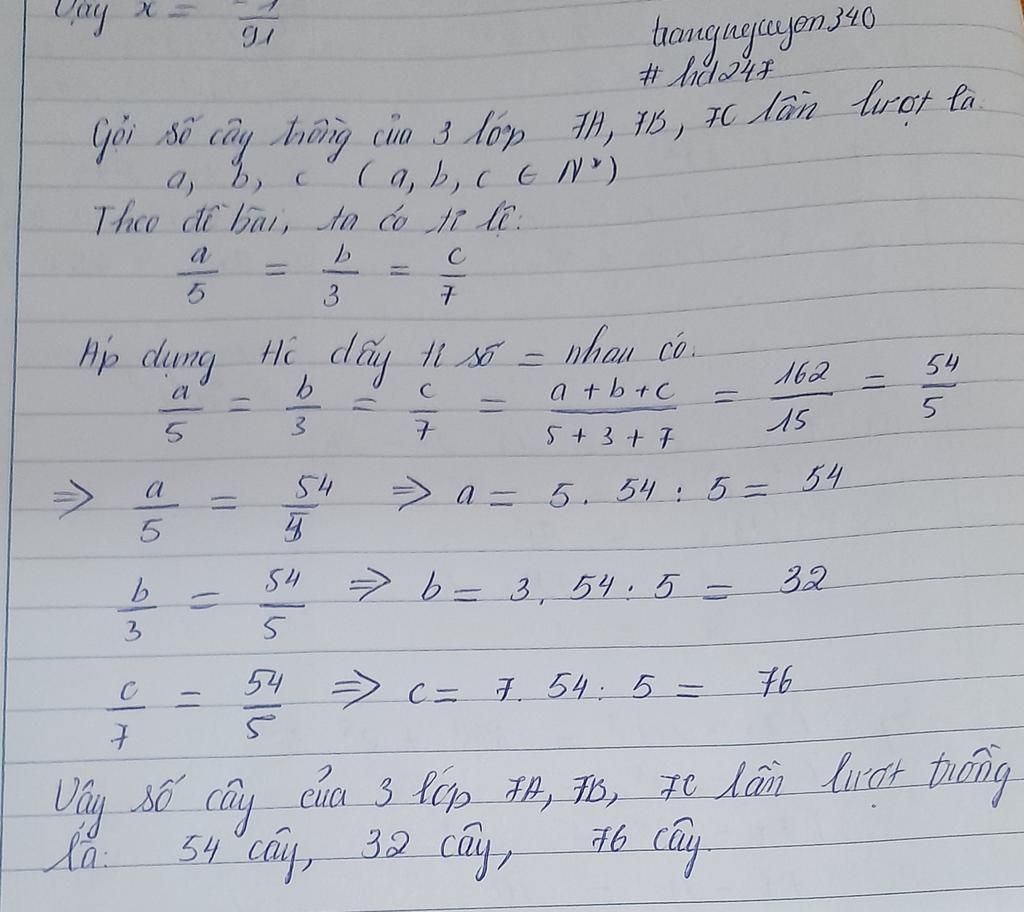 Vậy x = -1/91
trangnguyen340
# hd247
Gọi số cây trồng của 3 lớp 7A, 7B, 7C lần lượt là
a, b, c ( a, b, c ∈ N*)
Theo đề bài, ta có tỉ lệ:
a/5 = b/3 = c/7
Áp dụng t/c dãy tỉ số = nhau có.
a/5 = b/3 = c/7 = (a+b+c)/(5+3+7) = 162/15 = 54/5
⇒ a/5 = 54/5 ⇒ a = 5. 54 : 5 = 54
b/3 = 54/5 ⇒ b = 3. 54 : 5 = 32
c/7 = 54/5 ⇒ c = 7. 54 : 5 = 76
Vậy số cây của 3 lớp 7A, 7B, 7C lần lượt trồng
là: 54 cây, 32 cây, 76 cây.